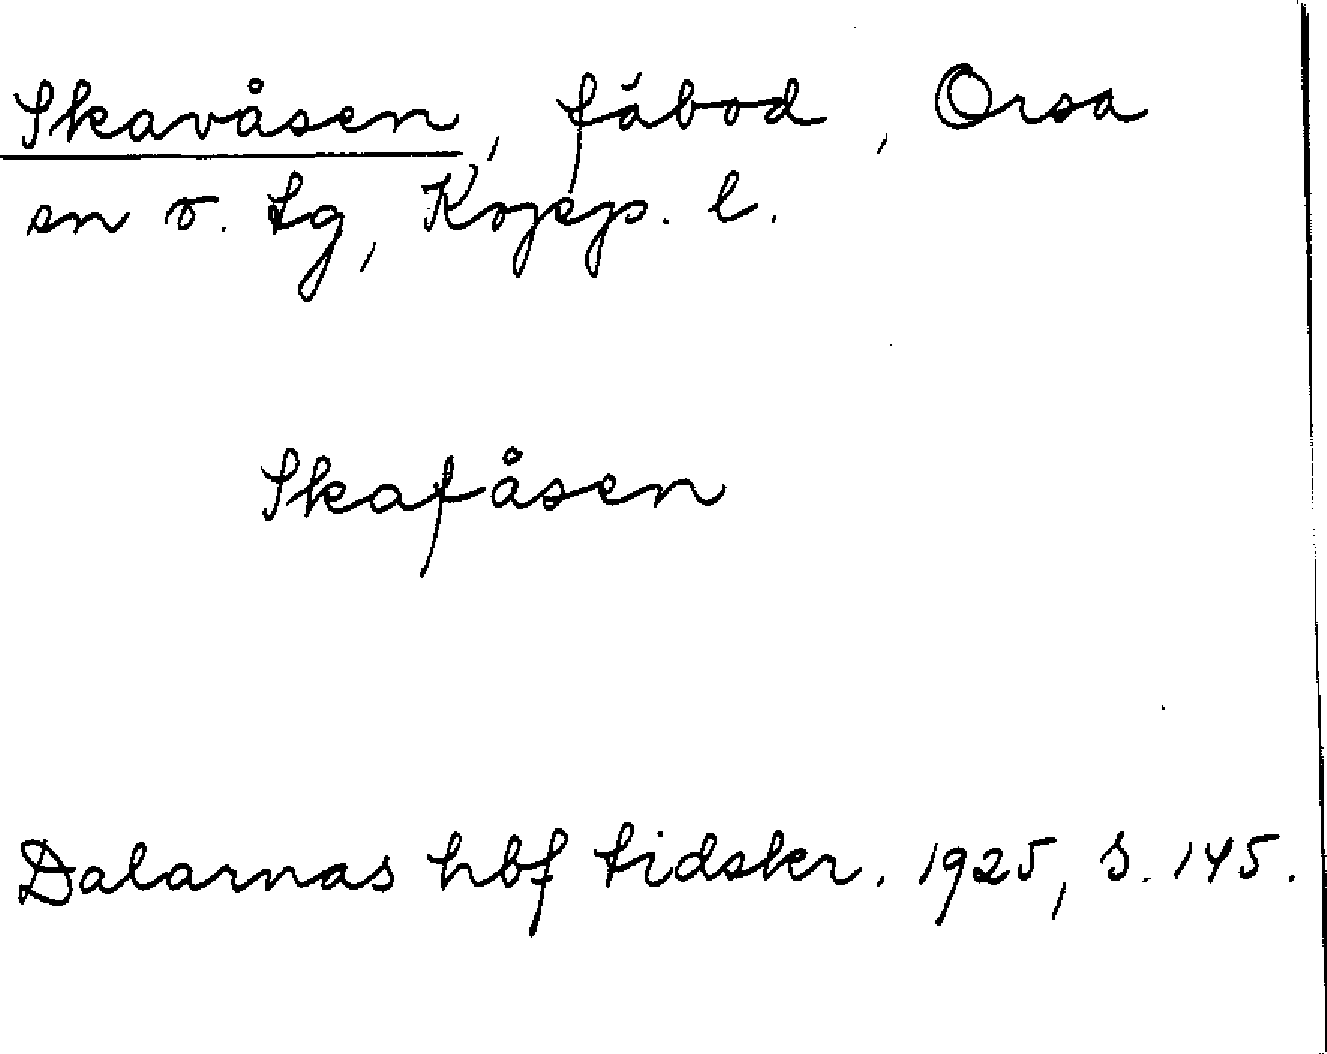 Skavåsen, fäbod, Orsa
sn o. tg, Kopp. l.
Skafåsen
Dalarnas hbf tidskr. 1925, s. 145.